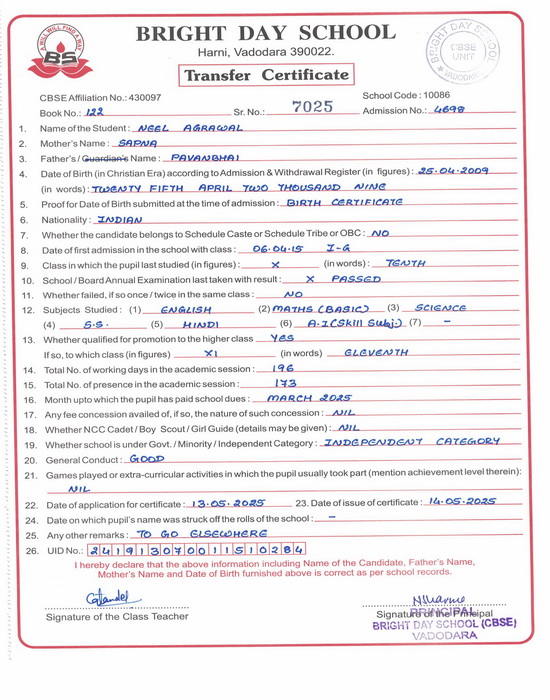 A WILL WILL FIND A WAY
BS
BRIGHT DAY SCHOOL
Harni, Vadodara 390022.
BRIGHT DAY SCHOOL
CBSE
UNIT
VADODARA
Transfer Certificate
CBSE Affiliation No.: 430097 School Code : 10086
Book No.: 122 Sr. No.: 7025 Admission No.: 4698
1. Name of the Student : NEEL AGRAWAL
2. Mother's Name : SAPNA
3. Father's / Guardian's Name : PAVANBHAI
4. Date of Birth (in Christian Era) according to Admission & Withdrawal Register (in figures) : 25.04.2009
(in words) : TWENTY FIFTH APRIL TWO THOUSAND NINE
5. Proof for Date of Birth submitted at the time of admission : BIRTH CERTIFICATE
6. Nationality : INDIAN
7. Whether the candidate belongs to Schedule Caste or Schedule Tribe or OBC : NO
8. Date of first admission in the school with class : 06.04.15 I-G
9. Class in which the pupil last studied (in figures) : X (in words) : TENTH
10. School / Board Annual Examination last taken with result : X PASSED
11. Whether failed, if so once / twice in the same class : NO
12. Subjects Studied : (1) ENGLISH (2) MATHS (BASIC) (3) SCIENCE
(4) S.S. (5) HINDI (6) A.I (Skill Subj.) (7) –
13. Whether qualified for promotion to the higher class YES
If so, to which class (in figures) XI (in words) ELEVENTH
14. Total No. of working days in the academic session : 196
15. Total No. of presence in the academic session : 173
16. Month upto which the pupil has paid school dues : MARCH 2025
17. Any fee concession availed of, if so, the nature of such concession : NIL
18. Whether NCC Cadet / Boy Scout / Girl Guide (details may be given) : NIL
19. Whether school is under Govt. / Minority / Independent Category : INDEPENDENT CATEGORY
20. General Conduct : GOOD
21. Games played or extra-curricular activities in which the pupil usually took part (mention achievement level therein):
NIL
22. Date of application for certificate : 13.05.2025 23. Date of issue of certificate : 14.05.2025
24. Date on which pupil's name was struck off the rolls of the school : –
25. Any other remarks : TO GO ELSEWHERE
26. UID No.: 241913070011510284
I hereby declare that the above information including Name of the Candidate, Father's Name,
Mother's Name and Date of Birth furnished above is correct as per school records.
Signature of the Class Teacher Signature of the Principal
PRINCIPAL
BRIGHT DAY SCHOOL (CBSE)
VADODARA